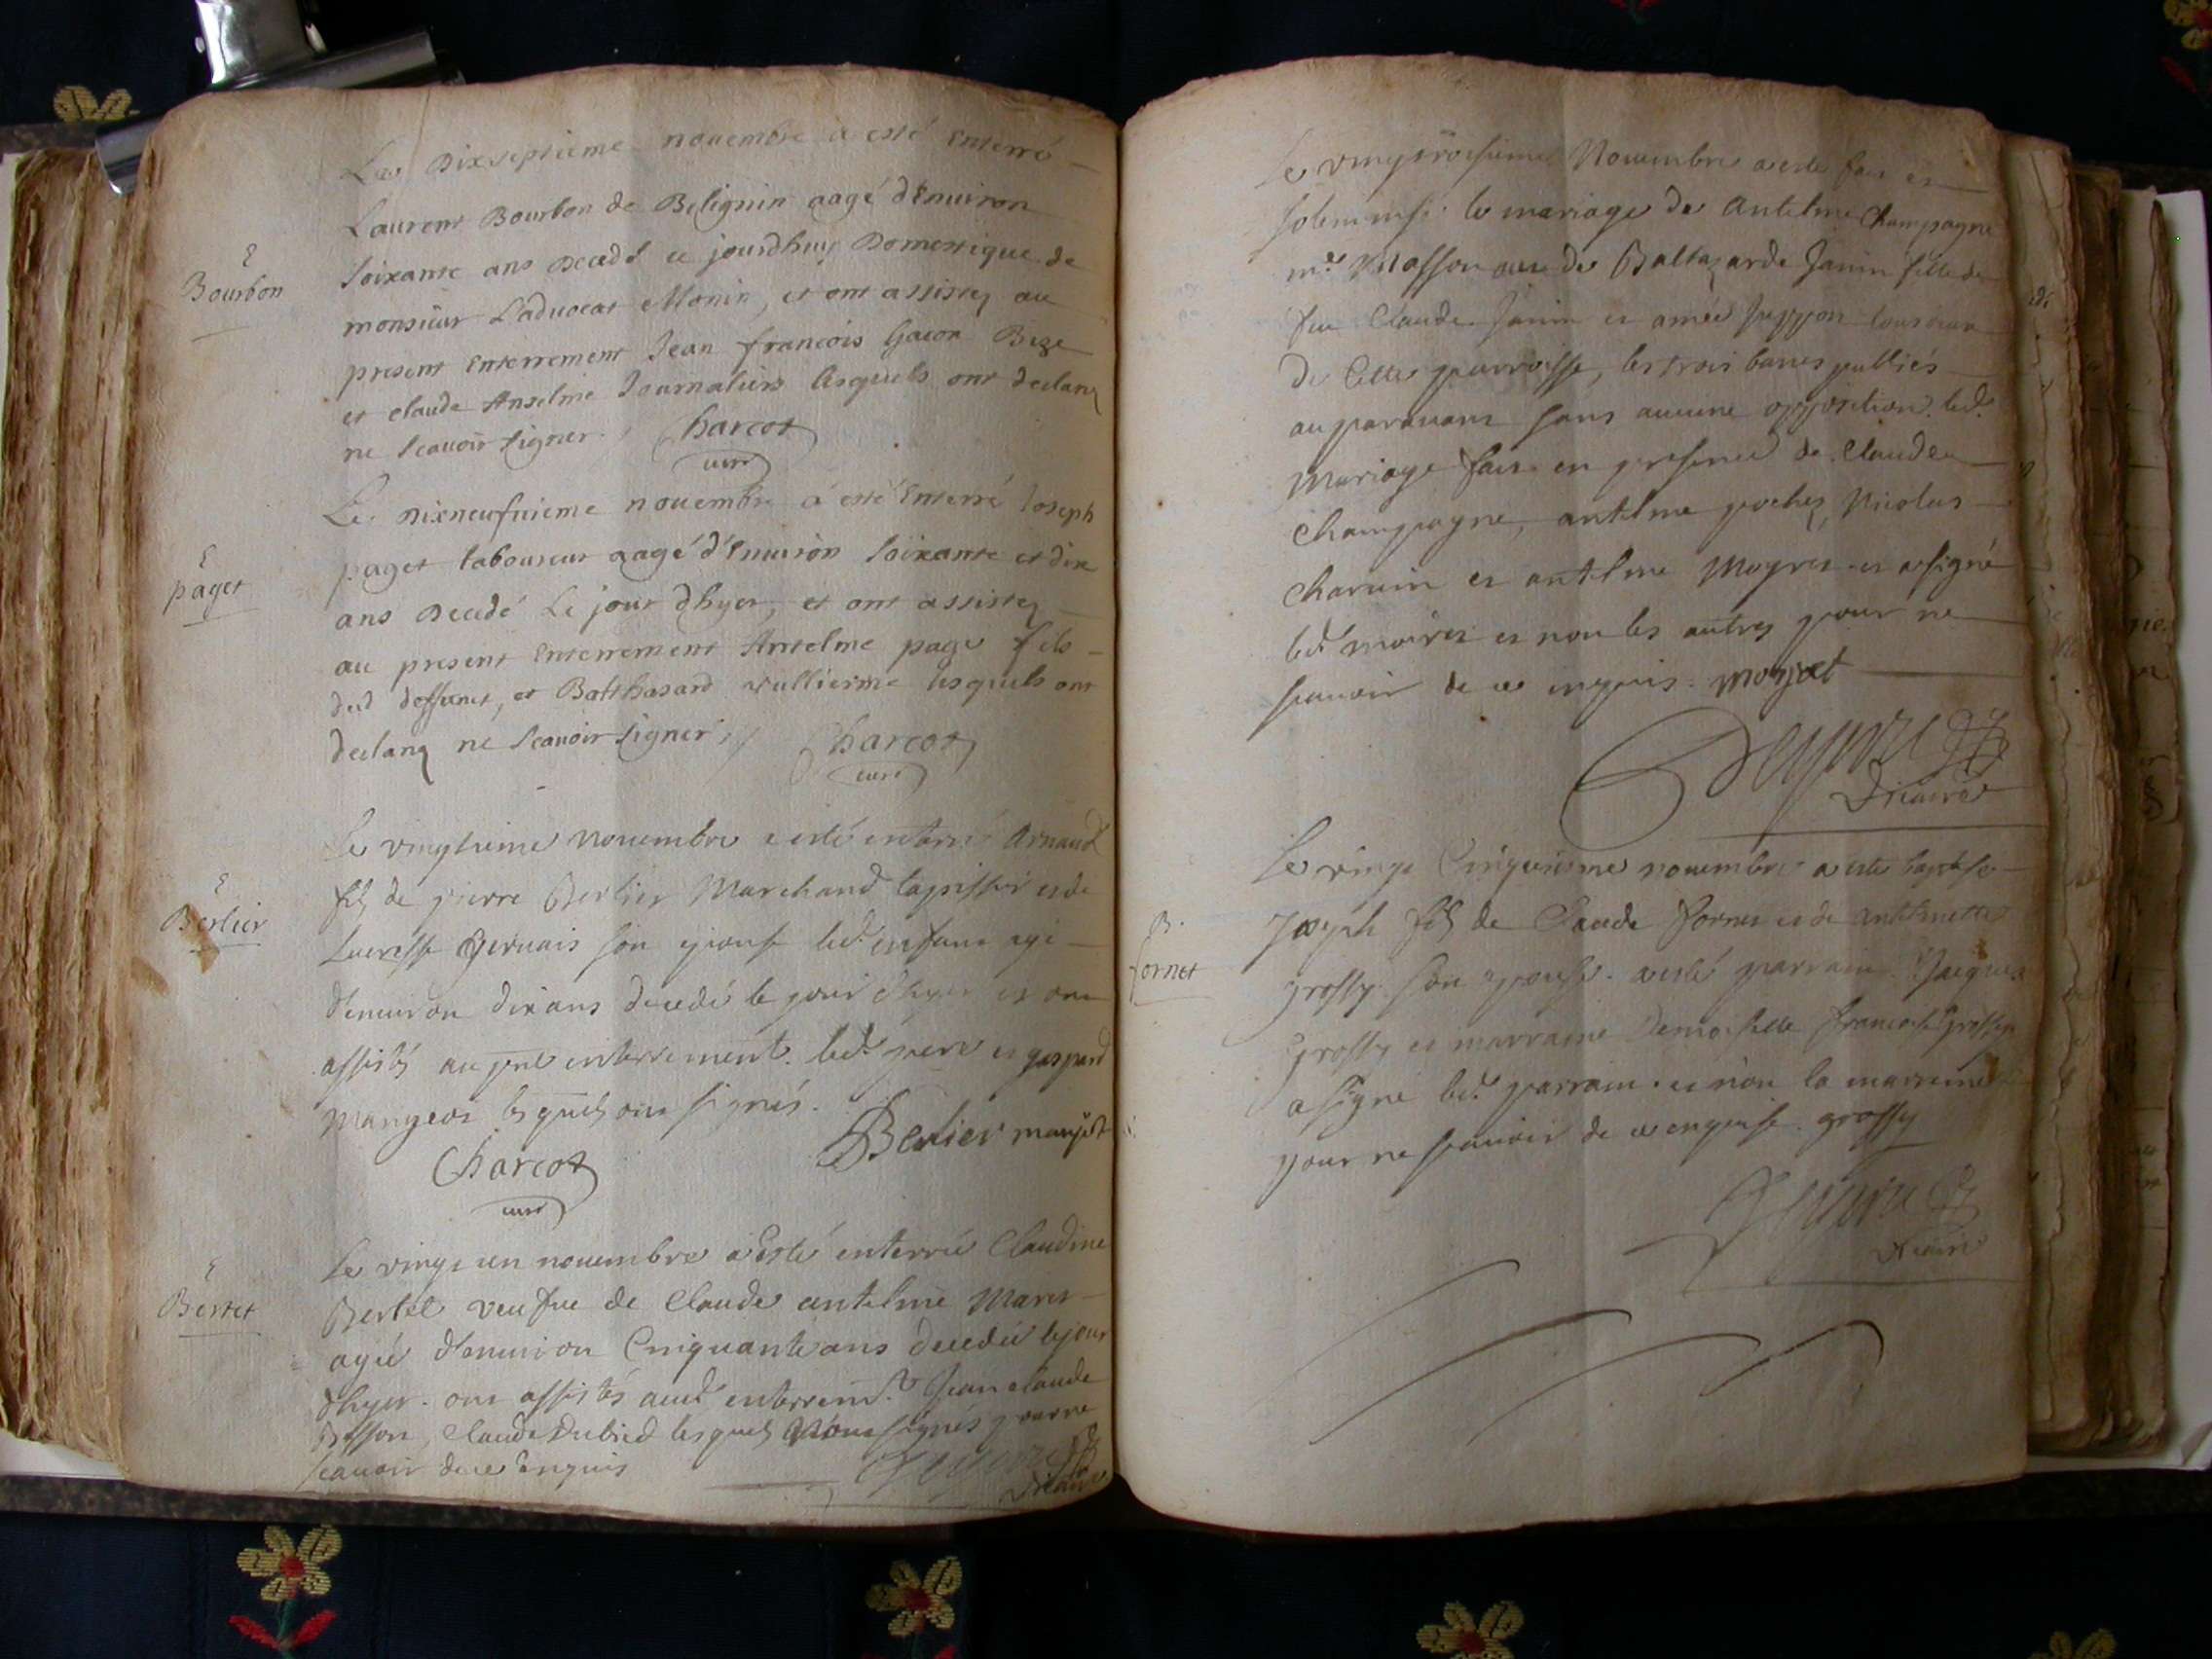 Le Dixseptieme novembre a esté Enterré
Laurent Bourbon de Belignin aagé d'Enuiron
E
Bourbon
soixante ans Decedé ce jourdhuy Domestique de
monsieur L'aduocat Monin, et ont assistez au
present Enterrement Jean francois Gacon Bize
et claude Anselme Journaliers lesquels ont declarez
ne scauoir signer. Charcot
curé
Le Dixneufuieme nouembre a esté Enterré Joseph
E
paget
paget laboureur aagé d'Enuiron soixante et dix
ans Decedé Le jour dhyer, et ont assistez
au present Enterrement Antelme page fils
dud deffunct, et Balthasard vullierme lesquels ont
declarez ne scauoir signer, Charcot
curé
Le vingtieme nouembre a esté enterré Arnaud
E
Berlier
fils de pierre Berlier Marchand tapissier et de
Lucresse Geruais son epouse led. enfant agé
d'enuiron dix ans decedé le jour d'hyer et ont
assistés au pnt enterrement led. pere et gaspard
Mangeot lesquels ont signés.
Berlier manjot
Charcot
curé
Le vingt un nouembre a esté enterrée Claudine
E
Bertet
Bertet veufue de Claude antelme Maret
agée d'enuiron Cinquante ans decedée le jour
dhyer. ont assistés aud. enterremt. Jean claude
Claude Dubied lesquels n'ont signés pour ne
scauoir de ce Enquis
vicaire
Le vingtroisieme Nouembre a este fait et
solemnisé le mariage de Antelme Champagne
me. Masson auec Baltazarde Janin fille de
feu Claude Janin et amée tous deux
de Cette parroisse, les trois bans publiés
auparauant sans aucune opposition. led.
Mariage fait en presence de Claude
Champagne, antelme pochet, Nicolas
Charuin et antelme Moyret et a signé
led. moiret et non les autres pour ne
scauoir de ce enquis. moyret
vicaire
Le vingt Cinquiesme nouembre a este baptise
B.
fornet
Joseph fils de Claude fornet et de antelmette
grossy son epouse. a esté parrain Jacques
grossy et marraine Demoiselle francoise Grossy
a signé led. parrain et non la marraine
pour ne scauoir de ce enquise. grossy
vicaire